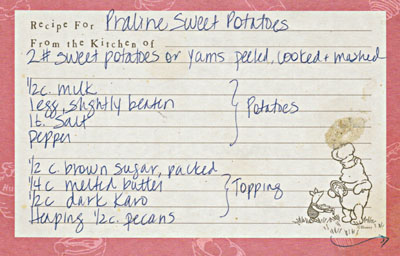 Recipe For Praline Sweet Potatoes
From the Kitchen of
2# sweet potatoes or yams peeled, cooked + mashed
1/2 c. milk
1 egg, slightly beaten
1 t. salt
pepper
Potatoes
1/2 c. brown sugar, packed
1/4 c melted butter
1/2 c. dark Karo
Heaping 1/2 c. pecans
Topping